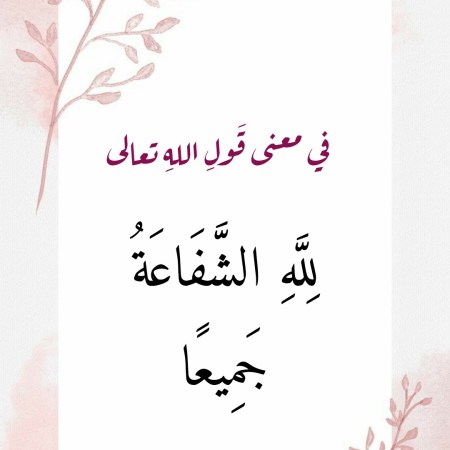 في معنى قَولِ اللهِ تعالى
لِلَّهِ الشَّفَاعَةُ
جَمِيعًا